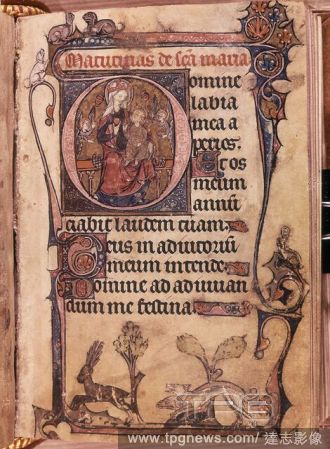 Matutinas de sca maria
omine
labia
mea a
peries. Et os
meum
annū
ciabit laudem tuam.
Deus in adiutoriū
meum intende.
Domine ad adiuuan
dum me festina.
TPG
www.tpgnews.com/ 達志影像